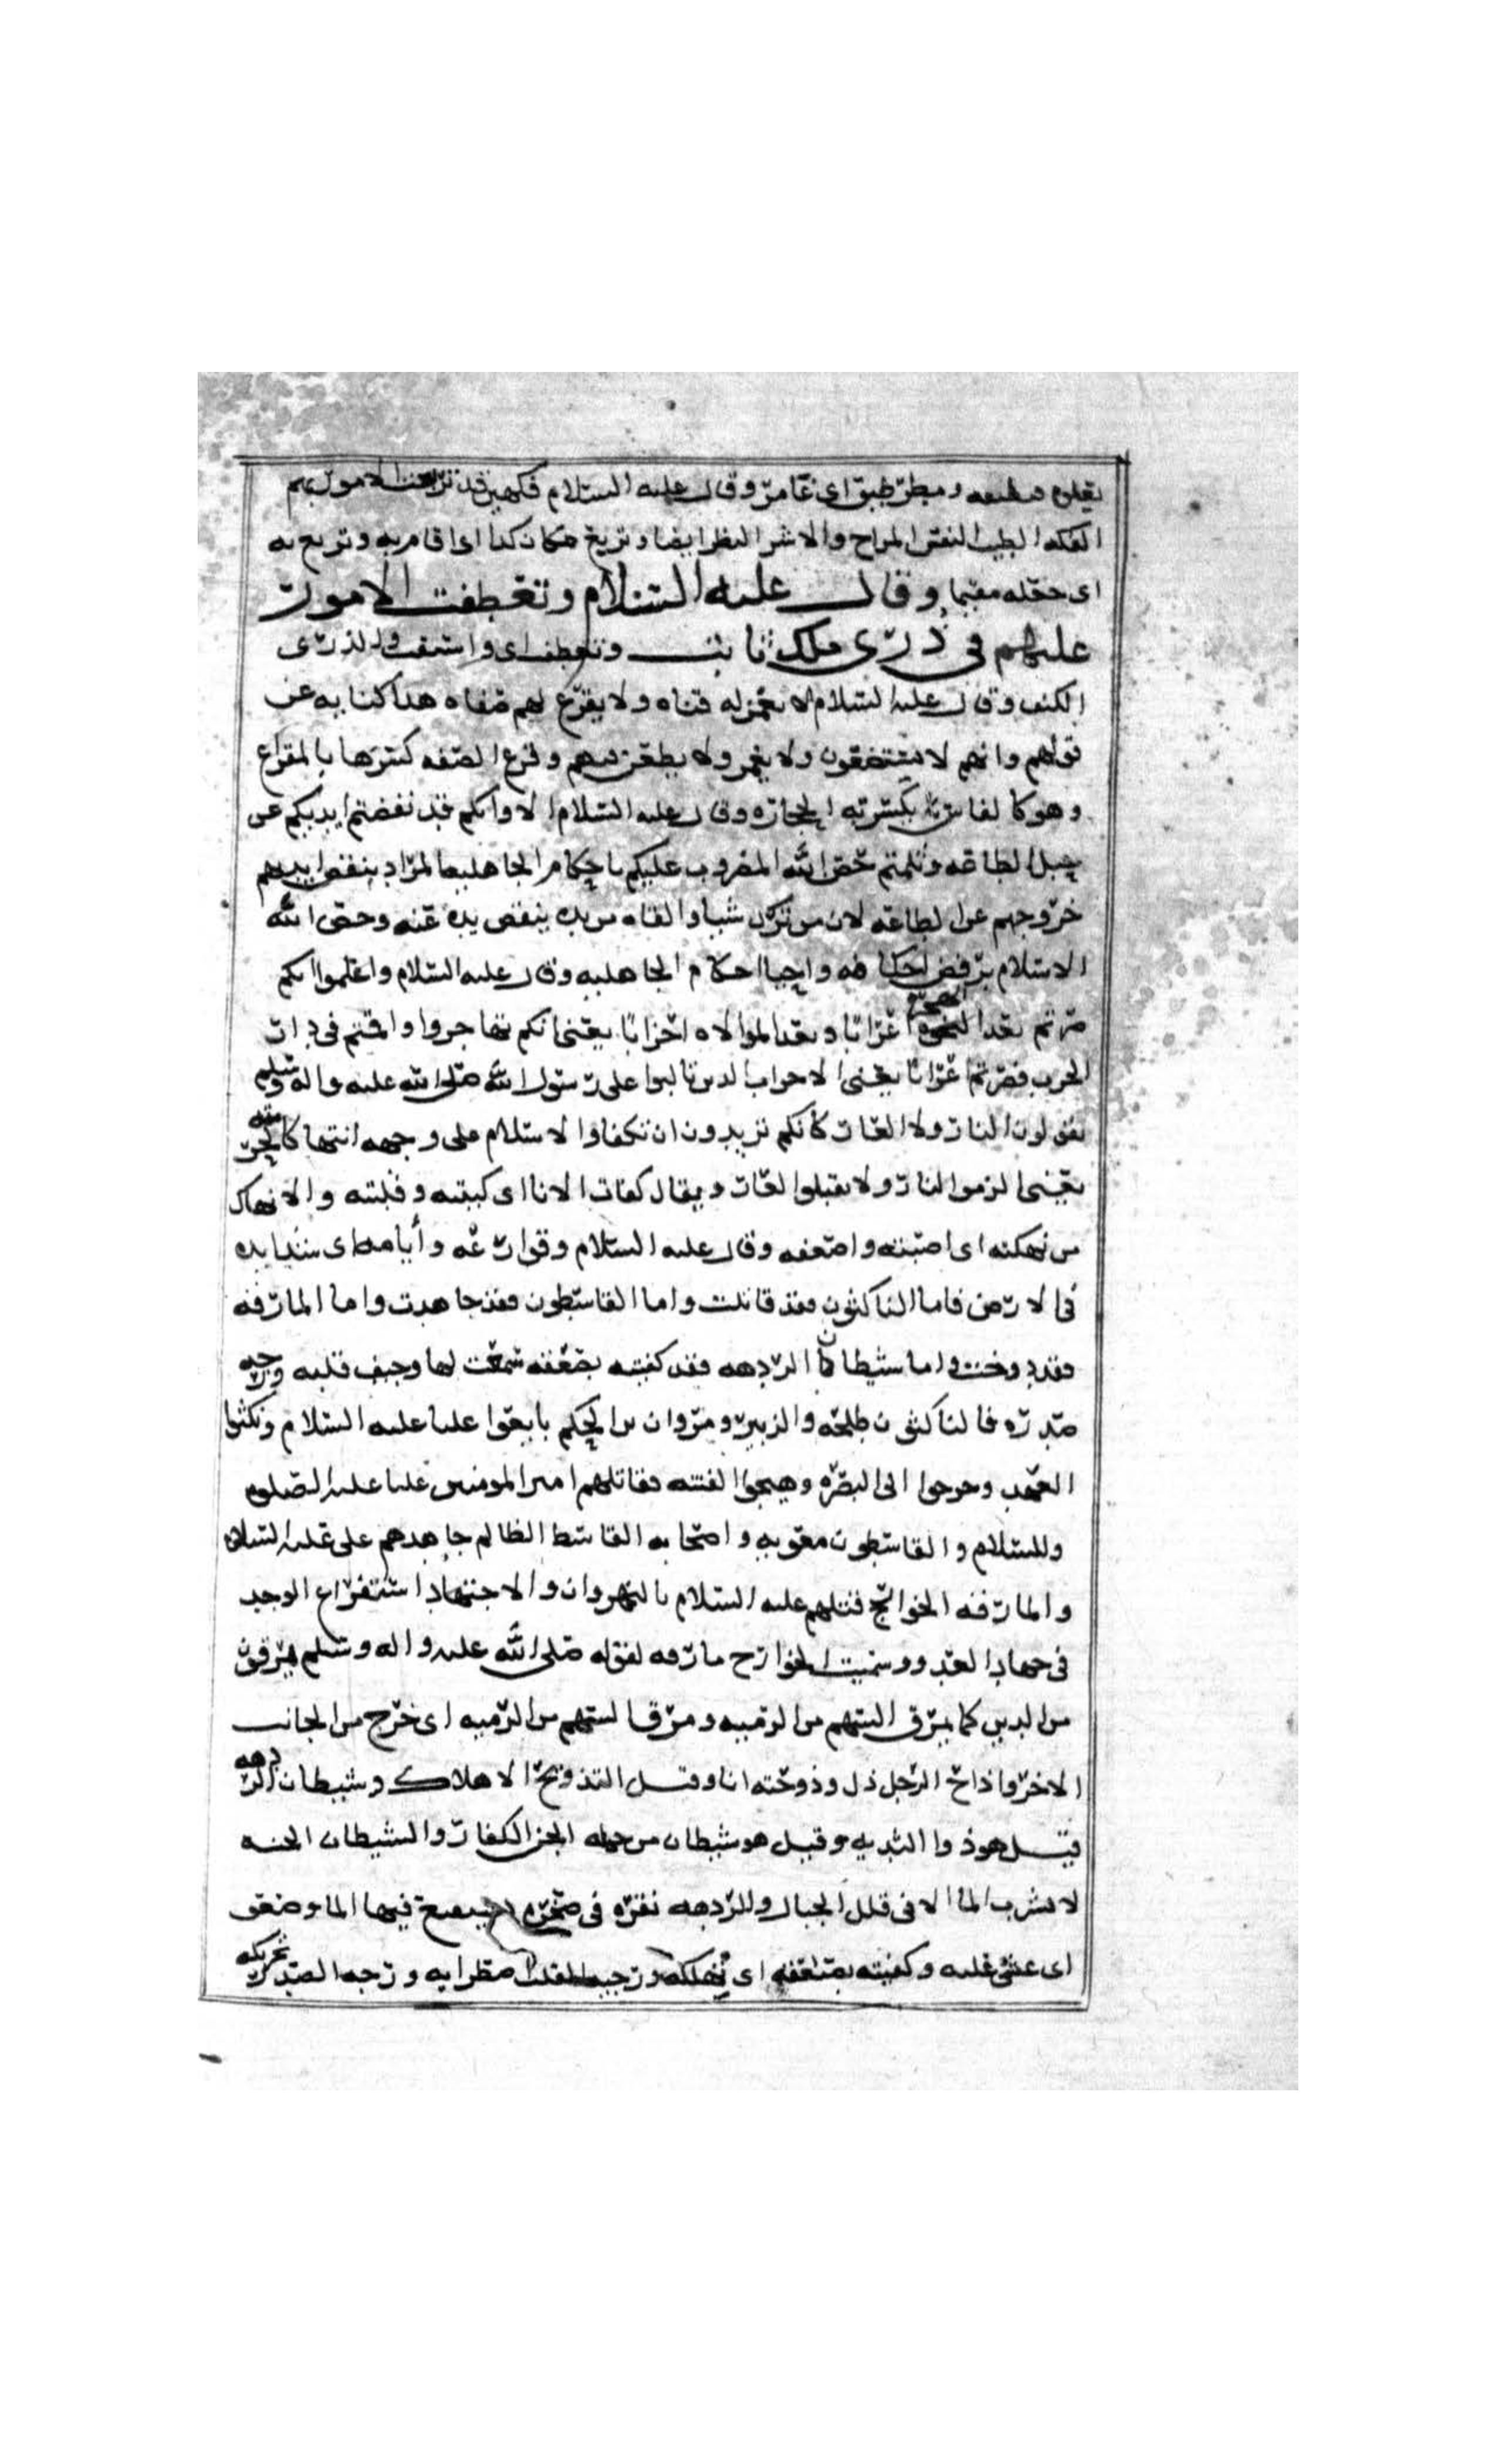 ومطر طبق اى غامر وقال عليه السلام فكهين قد تربعت الامور بهم
الفكه الطيب النفس المزاح والاشر البطر ايضا وتربع مكان كدا اى اقام به وتربع به
اى جعله مقيما وقال عليه السلام وتعطفت الامور
عليهم فى ذرى ملك ثابت وتعطف اى و الذرى
الكنف وقال عليه السلام لا تغمز له قناه ولا يقرع لهم صفاه هدا كنايه عن
قوتهم وانهم لا يستضعفون ولا يغمز ولا يطعن فيهم وقرع الصفه كسرها بالمقراع
وهو كالفاس يكسر به الحجاره وقال عليه السلام الا وانكم قد نفضتم ايديكم عن
حبل الطاعه وثلمتم حصن الله المضروب عليكم باحكام الجاهليه المراد بنفض ايديهم
خروجهم عن الطاعه لان من ترك شيا والقاه من يده ينفض يده عنه وحصن الله
الاسلام برفض احكامه واحيا احكام الجاهليه وقال عليه السلام واعلموا انكم
صرتم بعد الهجره اعرابا وبعد الموالاه احزابا يعنى انكم هاجروا واقمتم فى دار
الحرب فصرتم اعرابا يعنى الاحزاب الدين تالبوا على رسول الله صلى الله عليه واله وسلم
تقولون النار ولا العار كانكم تريدون ان تكفاوا الاسلام على وجهه انتهاكا لحريمه
يعنى الزموا النار ولا تقبلوا العار ويقال كفات الانا اى كببته وقلبته والانهاك
من نهكته اى اصبته واضعفه وقال عليه السلام وقوارعه وايامه اى شدايده
فى الارض فاما الناكثون فقد قاتلت واما القاسطون فقد جاهدت واما المارقه
فقد دوخت واما شيطان الردهه فقد كفيته بصعقه سمعت لها وجيف قلبه ورجه
صدره فالناكثون طلحه والزبير ومروان بن الحكم بايعوا عليا عليه السلام ونكثوا
العهد وخرجوا الى البصره وهيجوا الفتنه فقاتلهم امير المومنين عليا عليه الصلوه
والسلام والقاسطون معويه واصحابه القاسط الظالم جاهدهم على عليه السلام
والمارقه الخوارج قتلهم عليه السلام بالنهروان والاجتهاد استفراع الوجد
فى جهاد العدو وسميت الخوارج مارقه لقوله صلى الله عليه واله وسلم يمرقون
من الدين كما يمرق السهم من الرميه ومرق السهم من الرميه اى خرج من الجانب
الاخر واذاخ الرجل ذل وذوخته انا وقيل التذويخ الاهلاك وشيطان الردهه
قيل هو ذوا الثديه وقيل هو شيطان من جمله الجن الكفار والشيطان الحيه
لا تشرب الما الا فى قلل الجبال والردهه نقره فى صخره يستنقع فيها الما وصعق
اى غشى عليه وكفيته بصعقه اى ورجيف القلب اضطرابه ورجه الصدر تحريكه